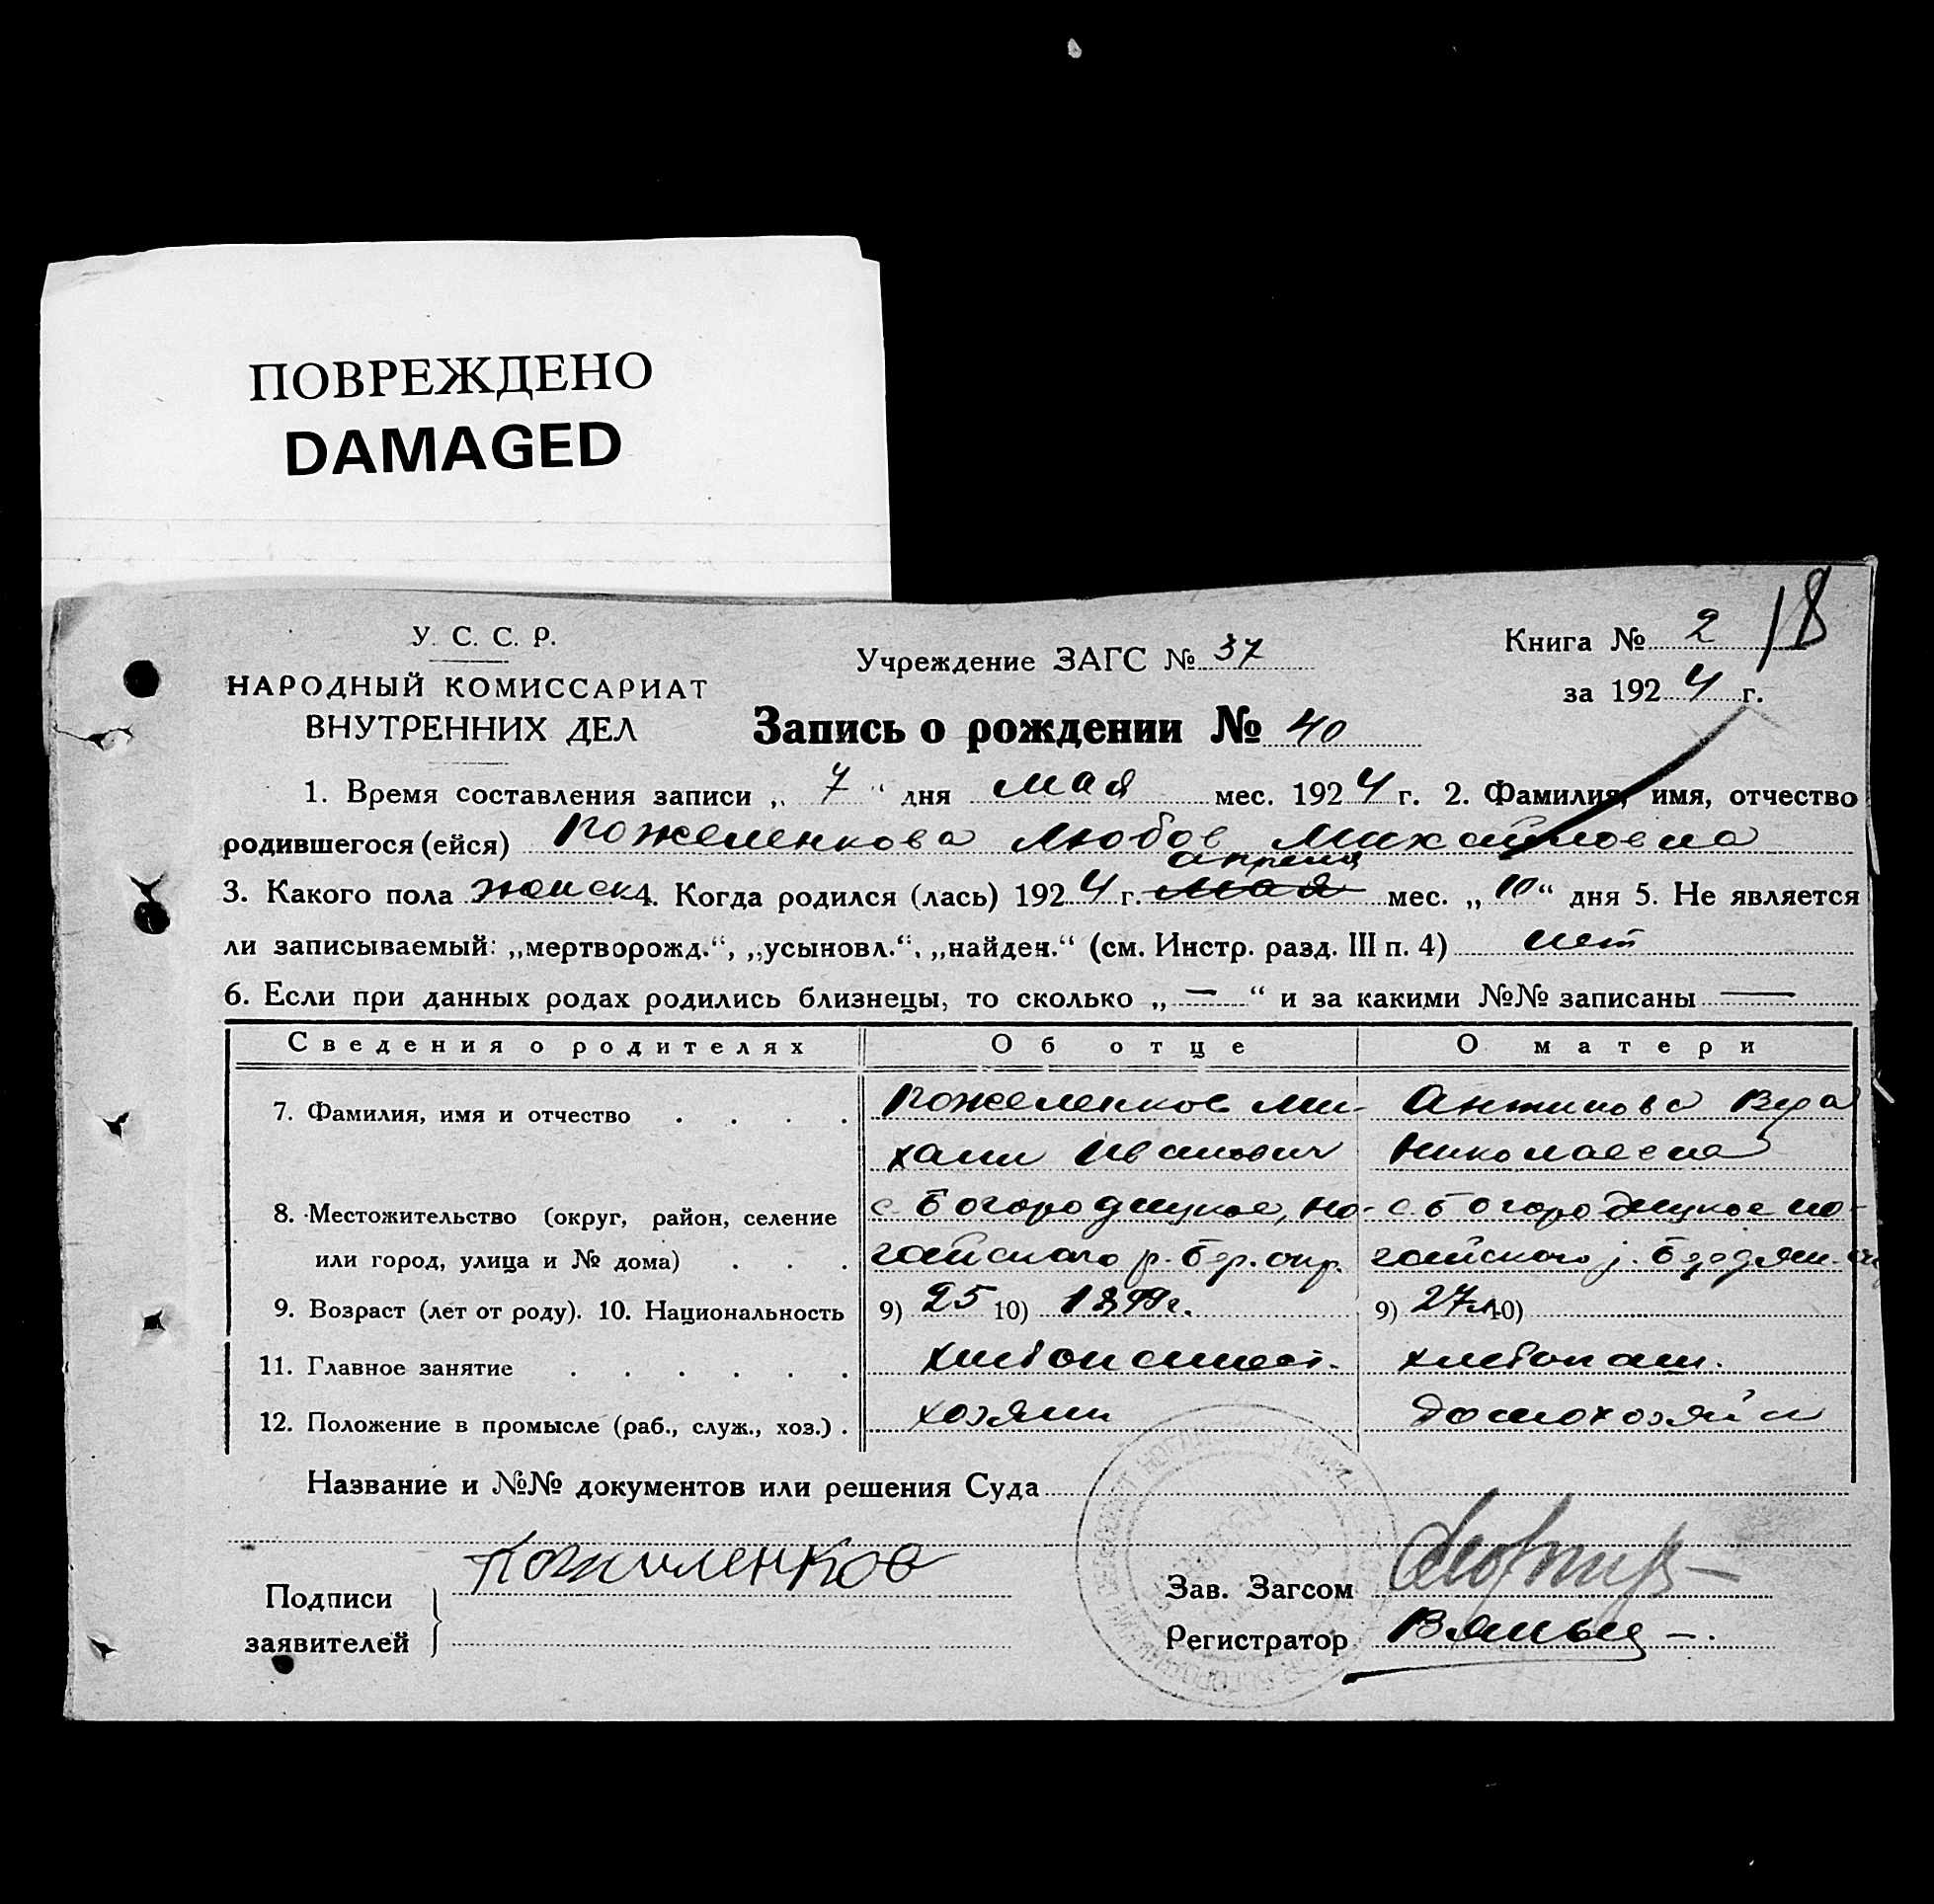 ПОВРЕЖДЕНО
DAMAGED
18
У. С. С. Р.
НАРОДНЫЙ КОМИССАРИАТ
ВНУТРЕННИХ ДЕЛ
Учреждение ЗАГС № 37
Книга № 2
за 1924 г.
Запись о рождении № 40
1. Время составления записи „ 7 “ дня мая мес. 1924 г. 2. Фамилия, имя, отчество
родившегося (ейся) Кожеленкова Любов Михайловна
апреля
3. Какого пола женск 4. Когда родился (лась) 1924 г. мая мес. „10“ дня 5. Не является
ли записываемый: „мертворожд.“, „усыновл.“, „найден.“ (см. Инстр. разд. III п. 4) нет
6. Если при данных родах родились близнецы, то сколько „ — “ и за какими №№ записаны —
Сведения о родителях Об отце О матери
7. Фамилия, имя и отчество . . . . Кожеленков Ми- Антипова Вера
хаил Иванович Николаевна
8. Местожительство (округ, район, селение с. Богородицкое, Но- с Богородицкое но-
или город, улица и № дома) . . . гайского р. Бер. окр. гайского р. Бердян.
9. Возраст (лет от роду). 10. Национальность 9) 25 10) 1899г. 9) 27 10)
11. Главное занятие . . . . . . хлебопашест. хлебопаш.
12. Положение в промысле (раб., служ., хоз.) . хозяин домохозяйн
Название и №№ документов или решения Суда
Подписи
заявителей
Кожиленков
Зав. Загсом
Регистратор